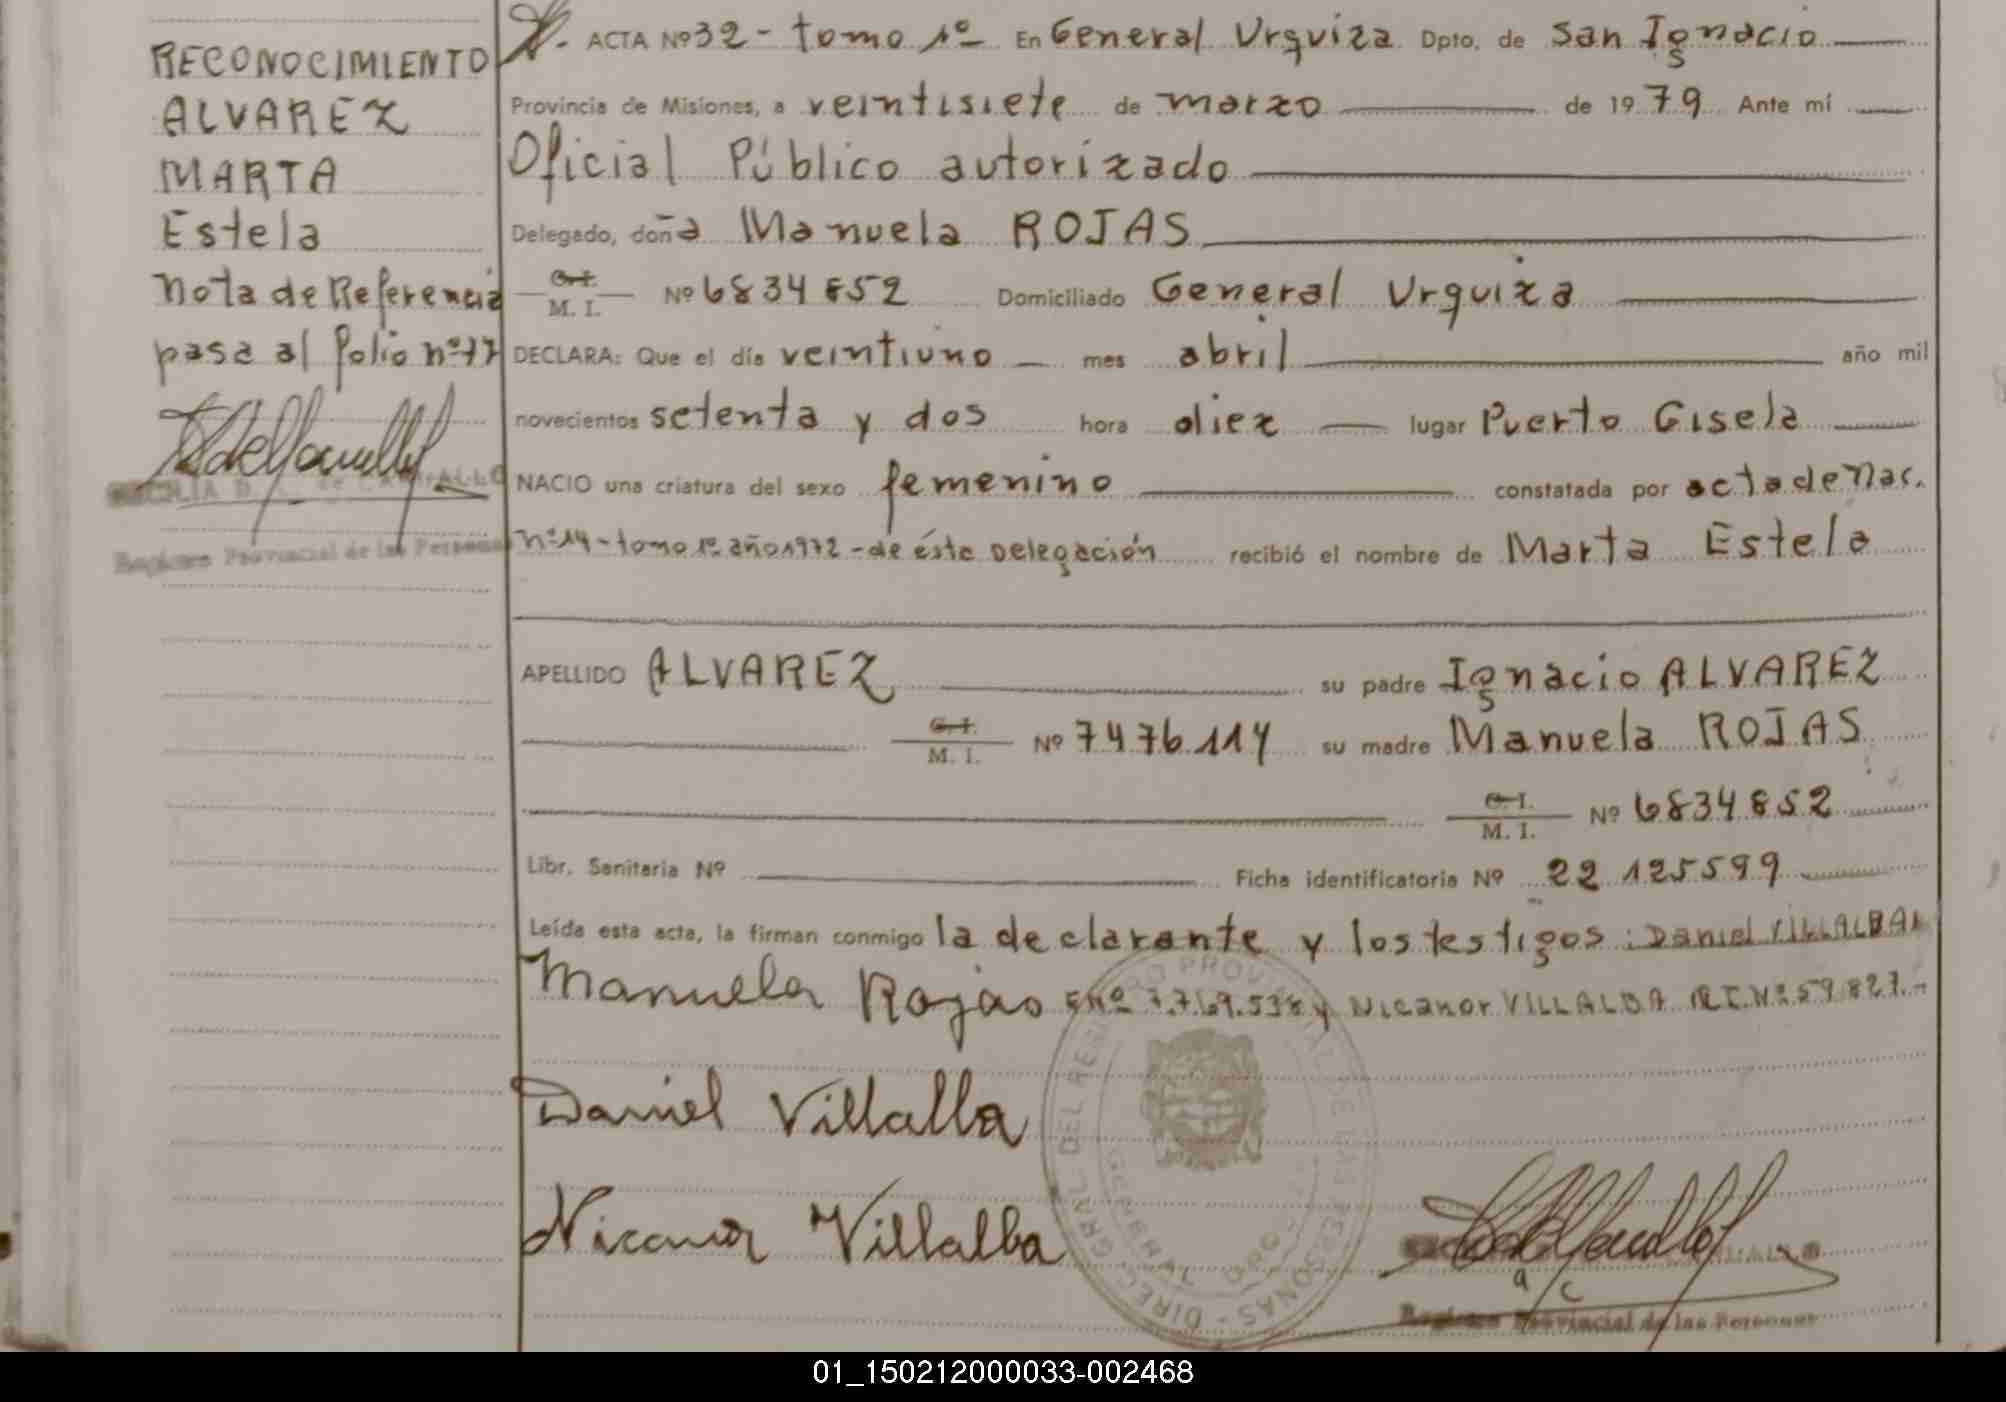 RECONOCIMIENTO
ALVAREZ
MARTA
Estela
Nota de Referencia
pasa al folio nº 17
Registro Provincial de las Personas
ACTA Nº 32 - tomo 1º En General Urquiza Dpto. de San Ignacio
Provincia de Misiones, a veintisiete de marzo de 1979 Ante mí
Oficial Público autorizado
Delegado, doña Manuela ROJAS
C. I. M. I. Nº 6834852 Domiciliado General Urquiza
DECLARA: Que el día veintiuno mes abril año mil
novecientos setenta y dos hora diez lugar Puerto Gisela
NACIO una criatura del sexo femenino constatada por acta de Nac.
nº 14 - tomo 1º año 1972 - de ésta Delegación recibió el nombre de Marta Estela
APELLIDO ALVAREZ su padre Ignacio ALVAREZ
C. I. M. I. Nº 7476.114 su madre Manuela ROJAS
C. I. M. I. Nº 6834852
Libr. Sanitaria Nº Ficha identificatoria Nº 22 125599
Leída esta acta, la firman conmigo la declarante y los testigos: Daniel VILLALBA
Manuela Rojas Nº 7.769.538 y Nicanor VILLALBA Nº 59.827.-
Daniel Villalba
Nicanor Villalba
DIREC. GRAL. DEL REGISTRO PROVINCIAL DE LAS PERSONAS
Registro Provincial de las Personas
01_150212000033-002468